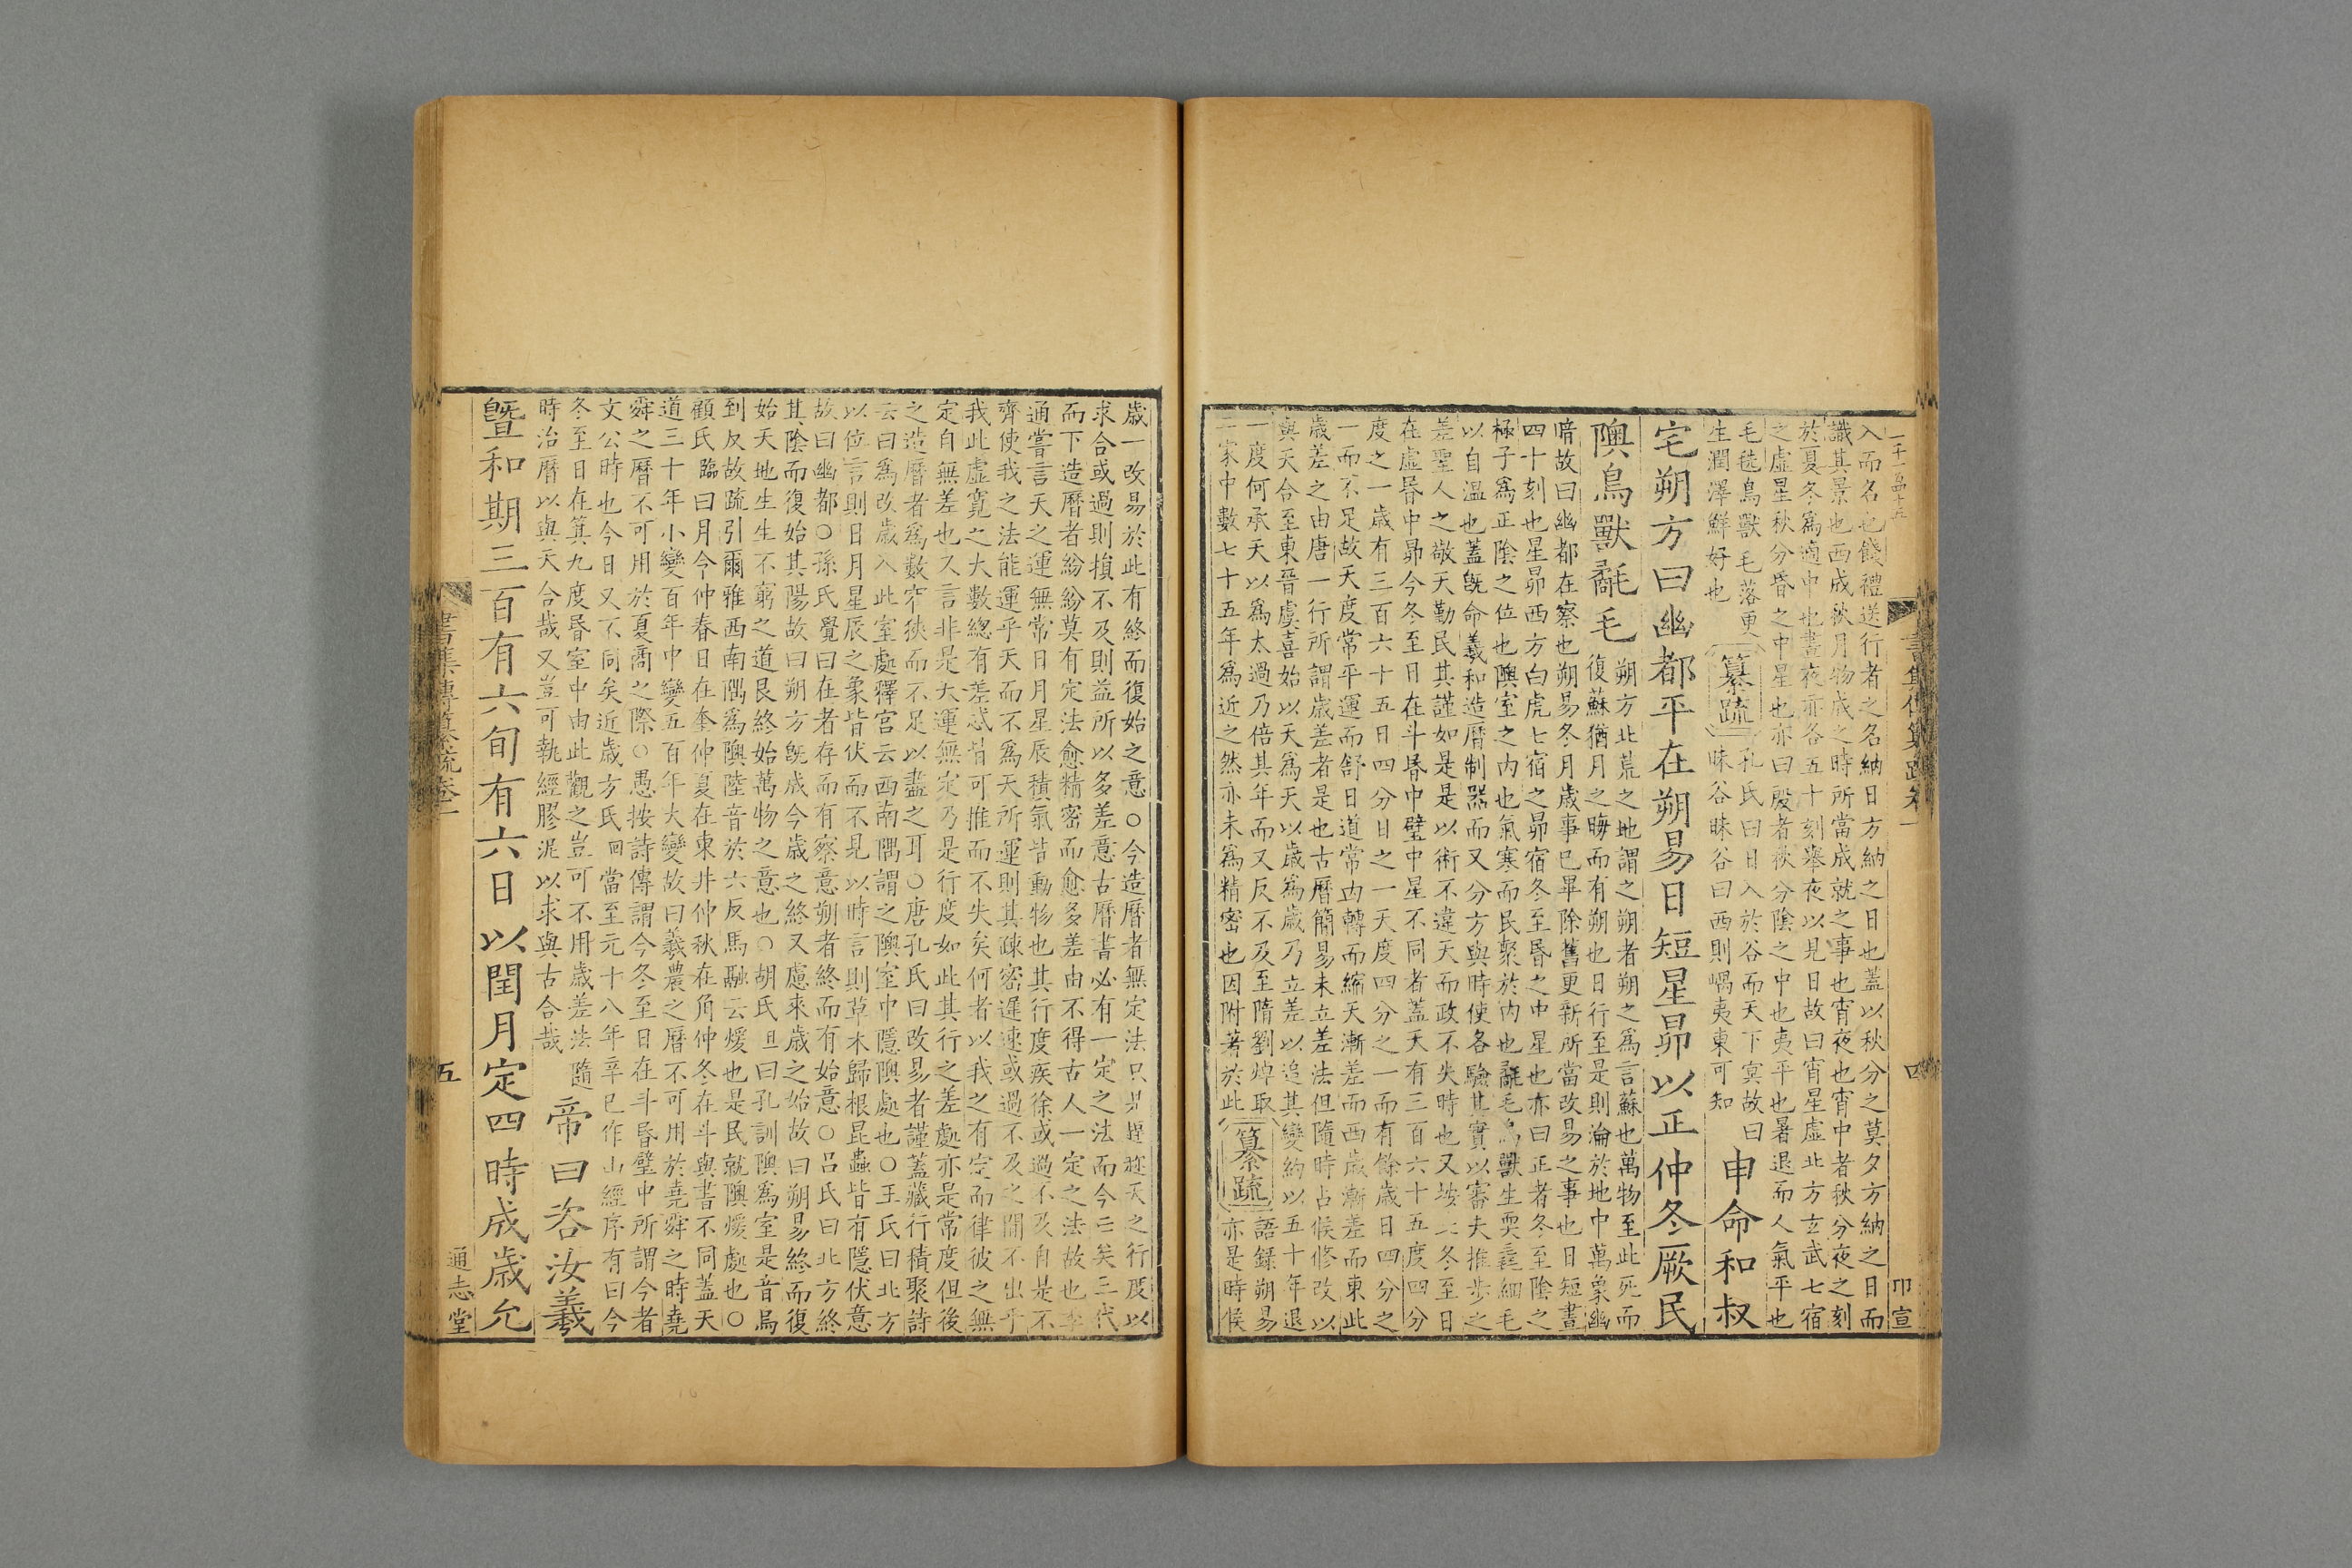 書集傳纂疏卷一 四 卬宣
入而名也餞禮送行者之名納日方納之日也蓋以秋分之莫夕方納之日而
識其景也西成秋月物成之時所當成就之事也宵夜也宵中者秋分夜之刻
於夏冬爲適中也晝夜亦各五十刻舉夜以見日故曰宵星虛北方玄武七宿
之虛星秋分昏之中星也亦曰殷者秋分陰之中也夷平也暑退而人氣平也
毛毨鳥獸毛落更
生潤澤鮮好也
纂疏
孔氏曰日入於谷而天下冥故曰
昧谷昧谷曰西則嵎夷東可知
申命和叔
宅朔方曰幽都平在朔易日短星昴以正仲冬厥民
隩鳥獸氄毛
朔方北荒之地謂之朔者朔之爲言蘇也萬物至此死而
復蘇猶月之晦而有朔也日行至是則淪於地中萬象幽
暗故曰幽都在察也朔易冬月歲事已畢除舊更新所當改易之事也日短晝
四十刻也星昴西方白虎七宿之昴宿冬至昏之中星也亦曰正者冬至陰之
極子爲正陰之位也隩室之內也氣寒而民聚於內也氄毛鳥獸生耎毳細毛
以自溫也蓋旣命羲和造曆制器而又分方與時使各驗其實以審夫推步之
差聖人之敬天勤民其謹如是是以術不違天而政不失時也又按此冬至日
在虛昏中昴今冬至日在斗昏中壁中星不同者蓋天有三百六十五度四分
度之一歲有三百六十五日四分日之一天度四分之一而有餘歲日四分之
一而不足故天度常平運而舒日道常內轉而縮天漸差而西歲漸差而東此
歲差之由唐一行所謂歲差者是也古曆簡易未立差法但隨時占候修改以
與天合至東晉虞喜始以天爲天以歲爲歲乃立差以追其變約以五十年退
一度何承天以爲太過乃倍其年而又反不及至隋劉焯取
二家中數七十五年爲近之然亦未爲精密也因附著於此
纂疏
語錄朔易
亦是時候
歲一改易於此有終而復始之意○今造曆者無定法只是趕趁天之行度以
求合或過則損不及則益所以多差意古曆書必有一定之法而今亡矣三代
而下造曆者紛紛莫有定法愈精密而愈多差由不得古人一定之法故也季
通嘗言天之運無常日月星辰積氣皆動物也其行度疾徐或過不及自是不
齊使我之法能運乎天而不爲天所運則其疎密遲速或過不及之閒不出乎
我此虛寬之大數總有差忒皆可推而不失矣何者以我之有定而律彼之無
定自無差也又言非是天運無定乃是行度如此其行之差處亦是常度但後
之造曆者爲數窄狹而不足以盡之耳○唐孔氏曰改易者謹蓋藏行積聚詩
云曰爲改歲入此室處釋宮云西南隅謂之隩室中隱隩處也○王氏曰北方
以位言則日月星辰之象皆伏而不見以時言則草木歸根昆蟲皆有隱伏意
故曰幽都○孫氏覺曰在者存而有察意朔者終而有始意○呂氏曰北方終
其陰而復始其陽故曰朔方旣成今歲之終又慮來歲之始故曰朔易終而復
始天地生生不窮之道艮終始萬物之意也○胡氏旦曰孔訓隩爲室是音烏
到反故疏引爾雅西南隅爲隩陸音於六反馬融云煖也是民就隩煖處也○
顧氏臨曰月令仲春日在奎仲夏在東井仲秋在角仲冬在斗與書不同蓋天
道三十年小變百年中變五百年大變故曰羲農之曆不可用於堯舜之時堯
舜之曆不可用於夏商之際○愚按詩傳謂今冬至日在斗昏壁中所謂今者
文公時也今日又不同矣近歲方氏回當至元十八年辛巳作山經序有曰今
冬至日在箕九度昏室中由此觀之豈可不用歲差法隨
時治曆以與天合哉又豈可執經膠泥以求與古合哉
帝曰咨汝羲
曁和期三百有六旬有六日以閏月定四時成歲允
書集傳纂疏卷一 五 通志堂